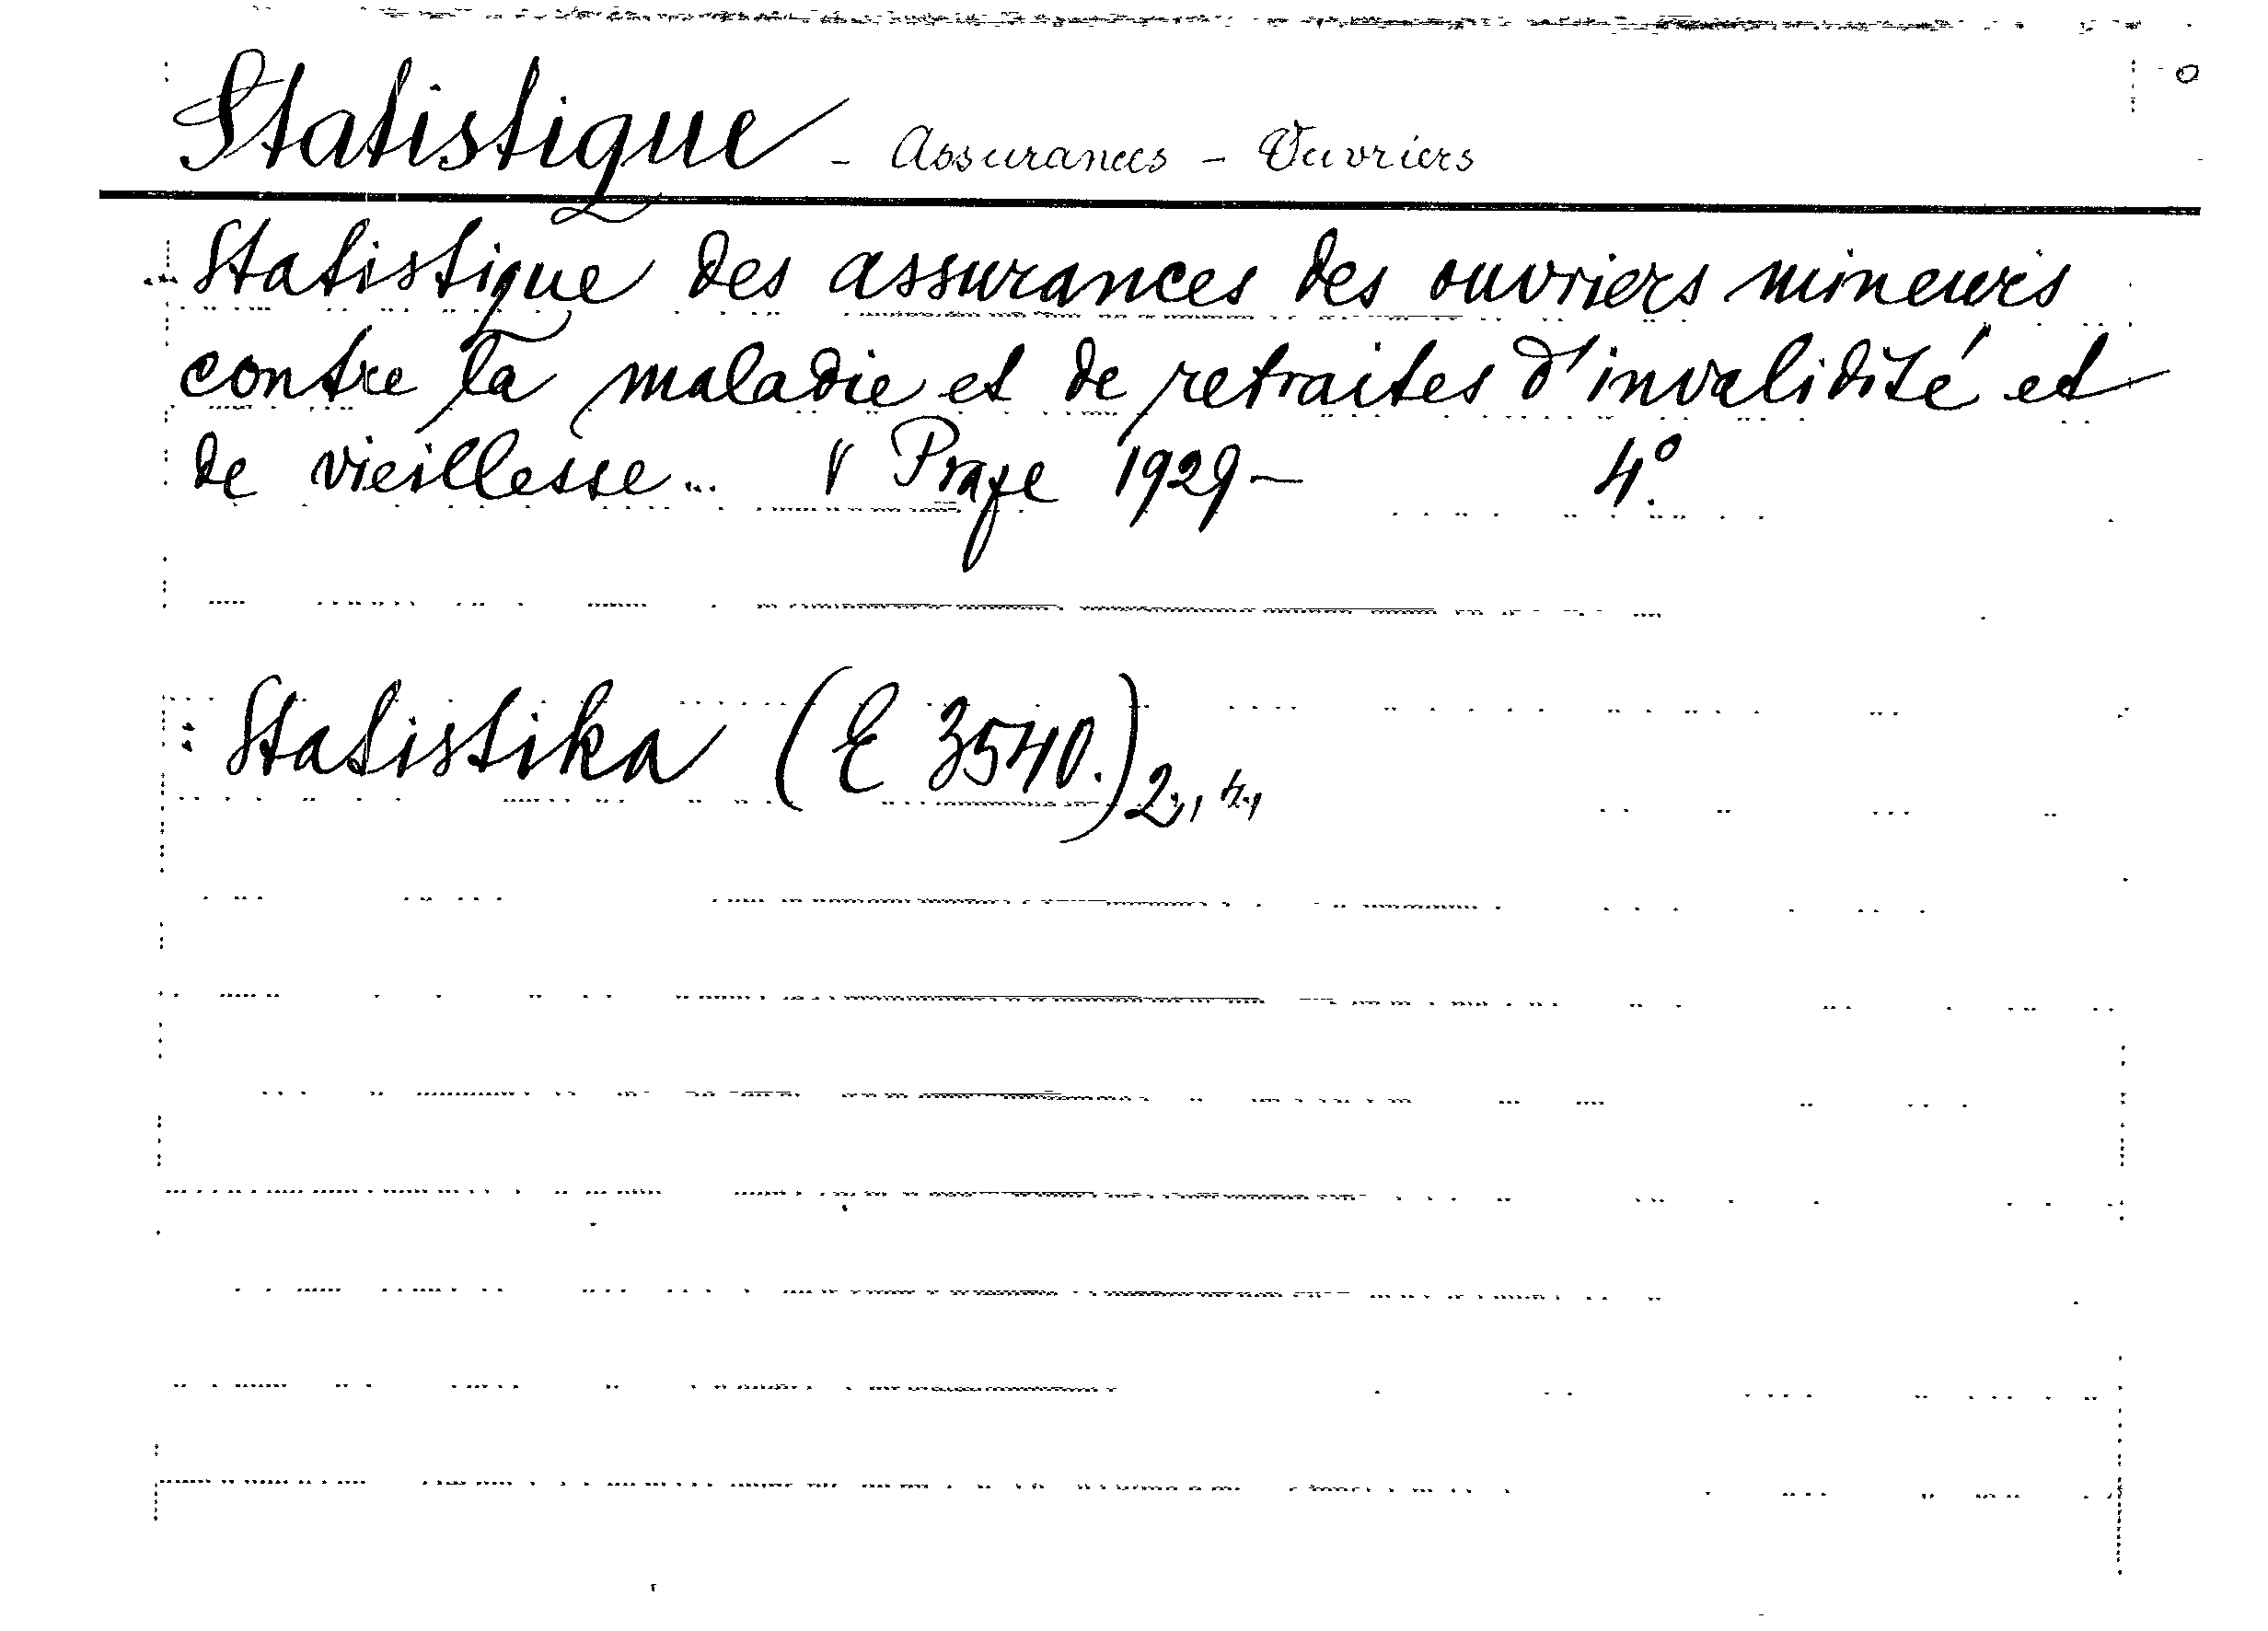 Statistique - Assurances - Ouvriers
Statistique des assurances des ouvriers mineurs
contre la maladie et de retraites d'invalidité et
de vieillesse... V Praze 1929 - 4°.
: Statistika (E 3540.)